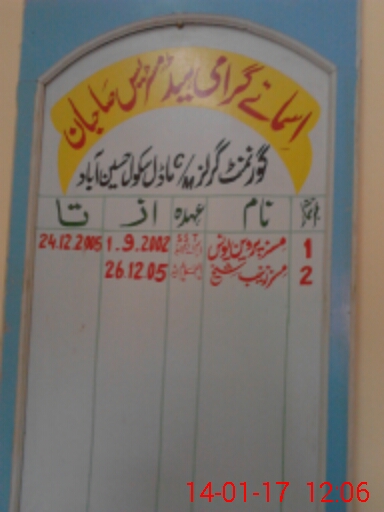 اسمائے گرامی ہیڈ مسٹریس صاحبان
گورنمنٹ گرلز M/C ماڈل سکول حسین آباد
نام عہدہ از تا
1 مسز پروین یونس S S T 1.9.2002 24.12.2005
2 مسز زینب شیخ 26.12.05
14-01-17 12:06